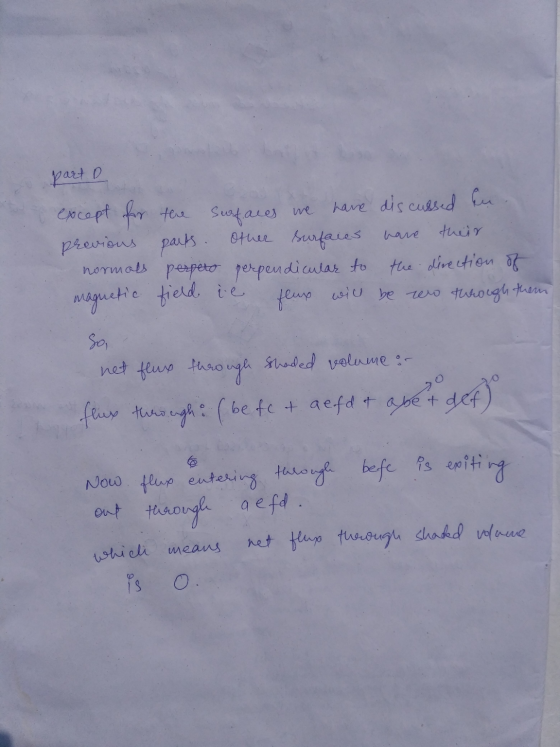 part D
except for the surfaces we have discussed in
previous parts. Other surfaces have their
normals perpero perpendicular to the direction of
magnetic field. i.e flux will be zero through them
So,
net flux through shaded volume :-
flux through: (befc + aefd + abe + dcf)
0 0
Now flux entering through befc is exiting
out through aefd.
which means net flux through shaded volume
is 0.